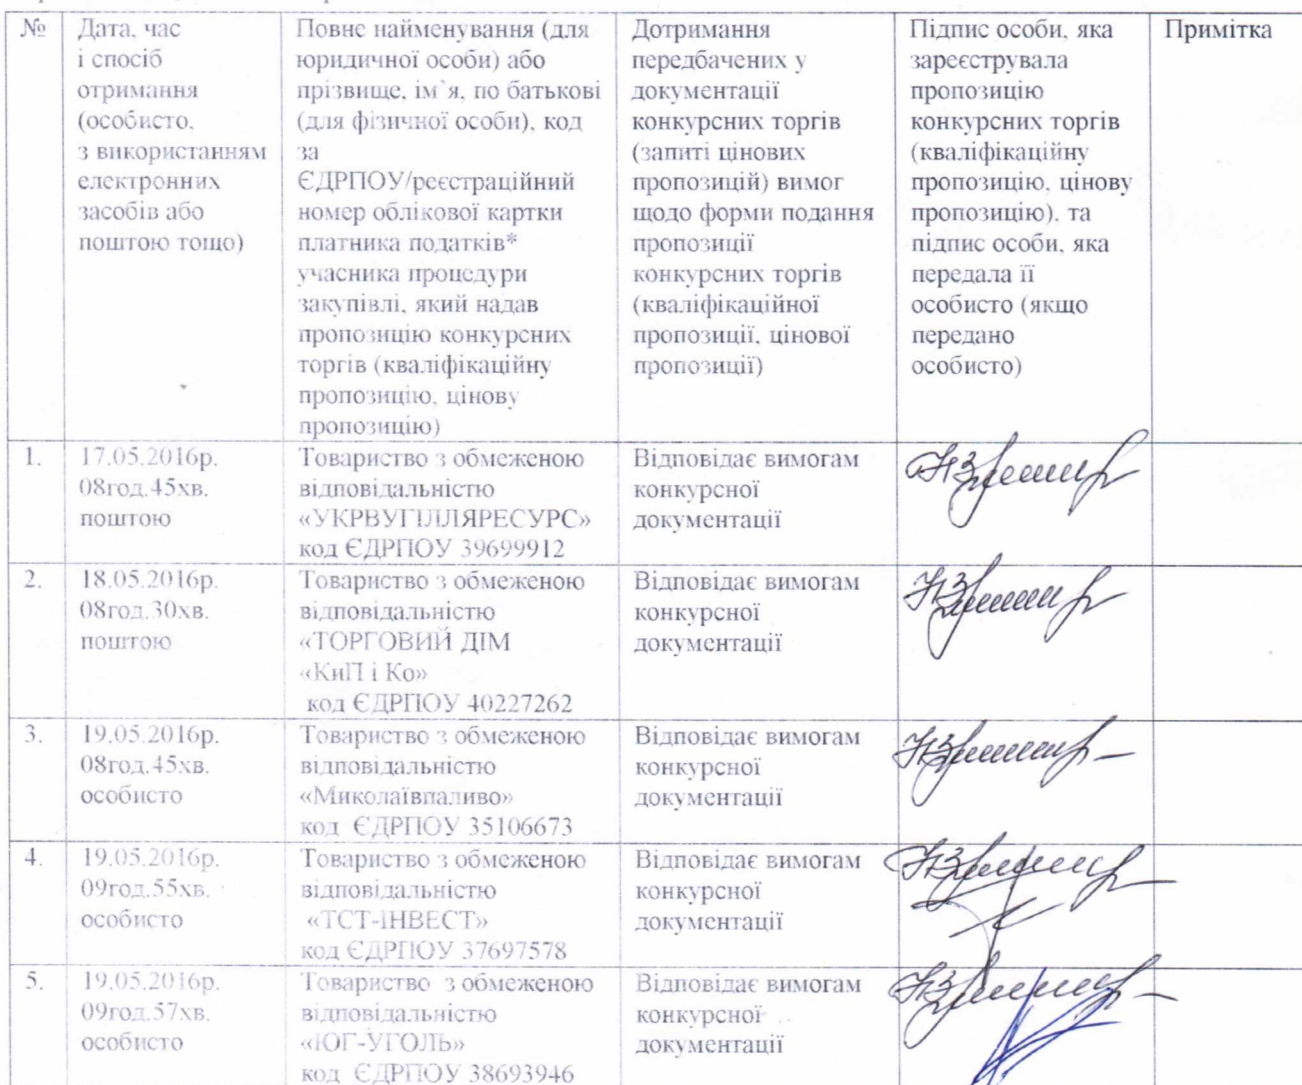 №
Дата, час
і спосіб
отримання
(особисто,
з використанням
електронних
засобів або
поштою тощо)
Повне найменування (для
юридичної особи) або
прізвище, ім`я, по батькові
(для фізичної особи), код
за
ЄДРПОУ/реєстраційний
номер облікової картки
платника податків*
учасника процедури
закупівлі, який надав
пропозицію конкурсних
торгів (кваліфікаційну
пропозицію, цінову
пропозицію)
Дотримання
передбачених у
документації
конкурсних торгів
(запиті цінових
пропозицій) вимог
щодо форми подання
пропозиції
конкурсних торгів
(кваліфікаційної
пропозиції, цінової
пропозиції)
Підпис особи, яка
зареєструвала
пропозицію
конкурсних торгів
(кваліфікаційну
пропозицію, цінову
пропозицію), та
підпис особи, яка
передала її
особисто (якщо
передано
особисто)
Примітка
1.
17.05.2016р.
08год.45хв.
поштою
Товариство з обмеженою
відповідальністю
«УКРВУГІЛЛЯРЕСУРС»
код ЄДРПОУ 39699912
Відповідає вимогам
конкурсної
документації
2.
18.05.2016р.
08год.30хв.
поштою
Товариство з обмеженою
відповідальністю
«ТОРГОВИЙ ДІМ
«КиП і Ко»
код ЄДРПОУ 40227262
Відповідає вимогам
конкурсної
документації
3.
19.05.2016р.
08год.45хв.
особисто
Товариство з обмеженою
відповідальністю
«Миколаївпаливо»
код ЄДРПОУ 35106673
Відповідає вимогам
конкурсної
документації
4.
19.05.2016р.
09год.55хв.
особисто
Товариство з обмеженою
відповідальністю
«ТСТ-ІНВЕСТ»
код ЄДРПОУ 37697578
Відповідає вимогам
конкурсної
документації
5.
19.05.2016р.
09год.57хв.
особисто
Товариство з обмеженою
відповідальністю
«ЮГ-УГОЛЬ»
код ЄДРПОУ 38693946
Відповідає вимогам
конкурсної
документації